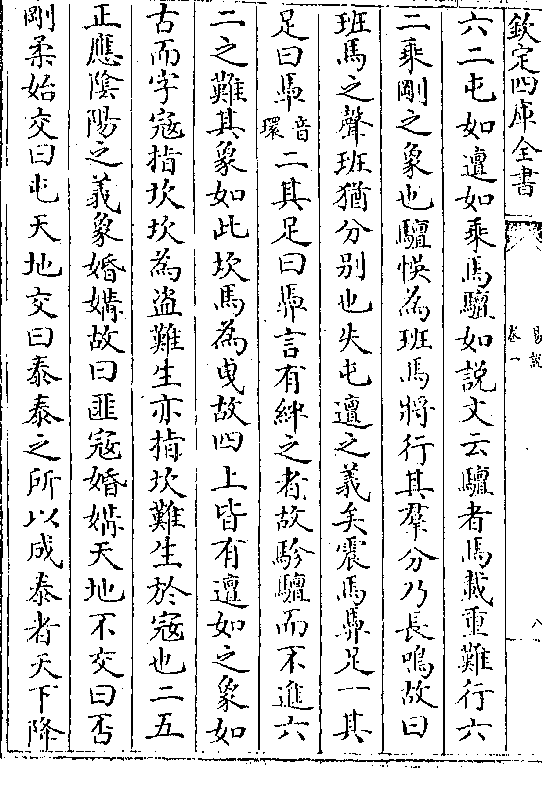 欽定四庫全書
易說
卷一
八
六二屯如邅如乘馬驙如説文云驙者馬載重難行六
二乘剛之象也驙悞為班馬將行其羣分乃長鳴故曰
班馬之聲班猶分别也失屯邅之義矣震馬馵足一其
足曰馵音環二其足曰馵言有絆之者故駗驙而不進六
二之難其象如此坎馬為曳故四上皆有邅如之象如
古而字寇指坎坎為盜難生亦指坎難生於寇也二五
正應陰陽之義象婚媾故曰匪寇婚媾天地不交曰否
剛柔始交曰屯天地交曰泰泰之所以成泰者天下降